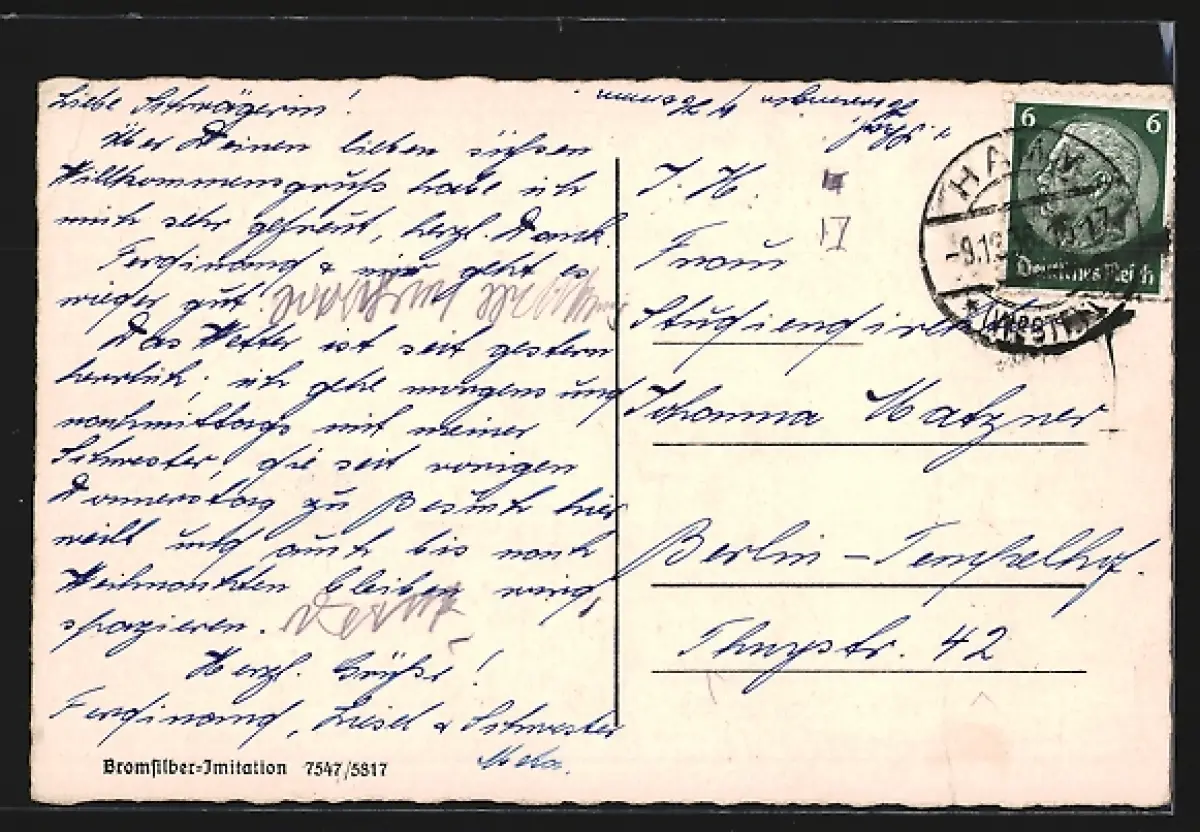 Liebe Schwägerin!
Über Deinen lieben süßen
Willkommensgruß habe ich
mich sehr gefreut, herzl. Dank.
Ferdinand & mir geht es
wieder gut.
Das Wetter ist seit gestern
herrlich; ich gehe morgens und
nachmittags mit meiner
Schwester, die seit vorigen
Donnerstag zu Besuch hier
weilt und auch bis nach
Weihnachten bleiben wird,
spazieren.
Herzl. Grüße!
Ferdinand, Liesel & Schwester
Meta.
Bromsilber-Imitation 7547/5817
6 6
Deutsches Reich
HAMM
-9.12
17
(WESTF)
I. H.
Frau
Studiendirektor
Johanna Matzner
Berlin-Tempelhof.
Thuystr. 42